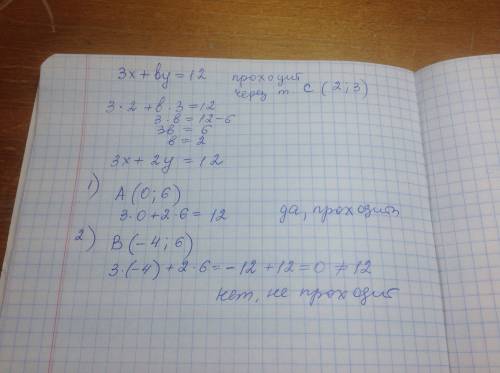 3x + by = 12 проходит через т. C (2; 3)
3·2 + b·3 = 12
3·b = 12-6
3b = 6
b = 2
3x + 2y = 12
1) A (0; 6)
3·0 + 2·6 = 12 да, проходить
2) B (-4; 6)
3·(-4) + 2·6 = -12 + 12 = 0 ≠ 12
нет, не проходит